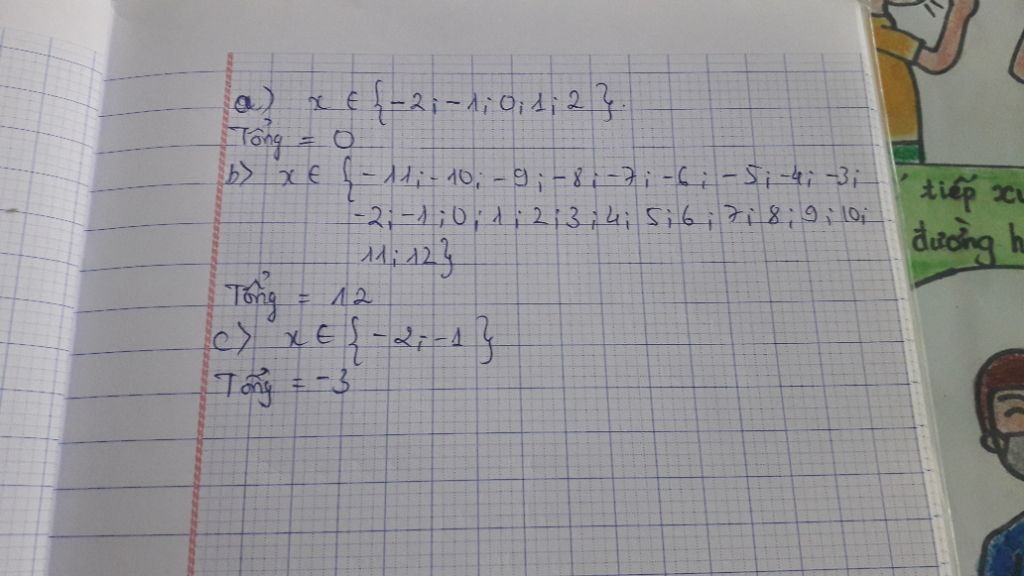 a) x ∈ {-2; -1; 0; 1; 2}.
Tổng = 0
b) x ∈ {-11; -10; -9; -8; -7; -6; -5; -4; -3;
-2; -1; 0; 1; 2; 3; 4; 5; 6; 7; 8; 9; 10;
11; 12}
Tổng = 12
c) x ∈ {-2; -1}
Tổng = -3
tiếp
đường